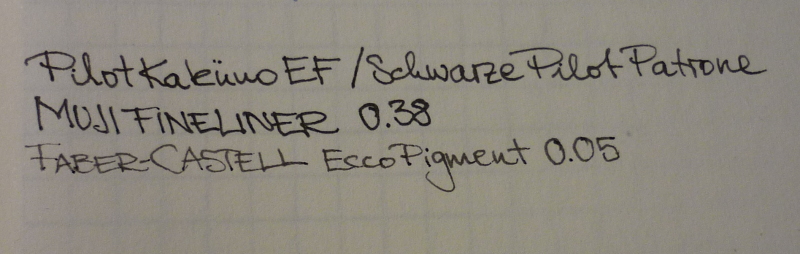 Pilot Kaküno EF / Schwarze Pilot Patrone
MUJI FINELINER 0.38
FABER-CASTELL EccoPigment 0.05